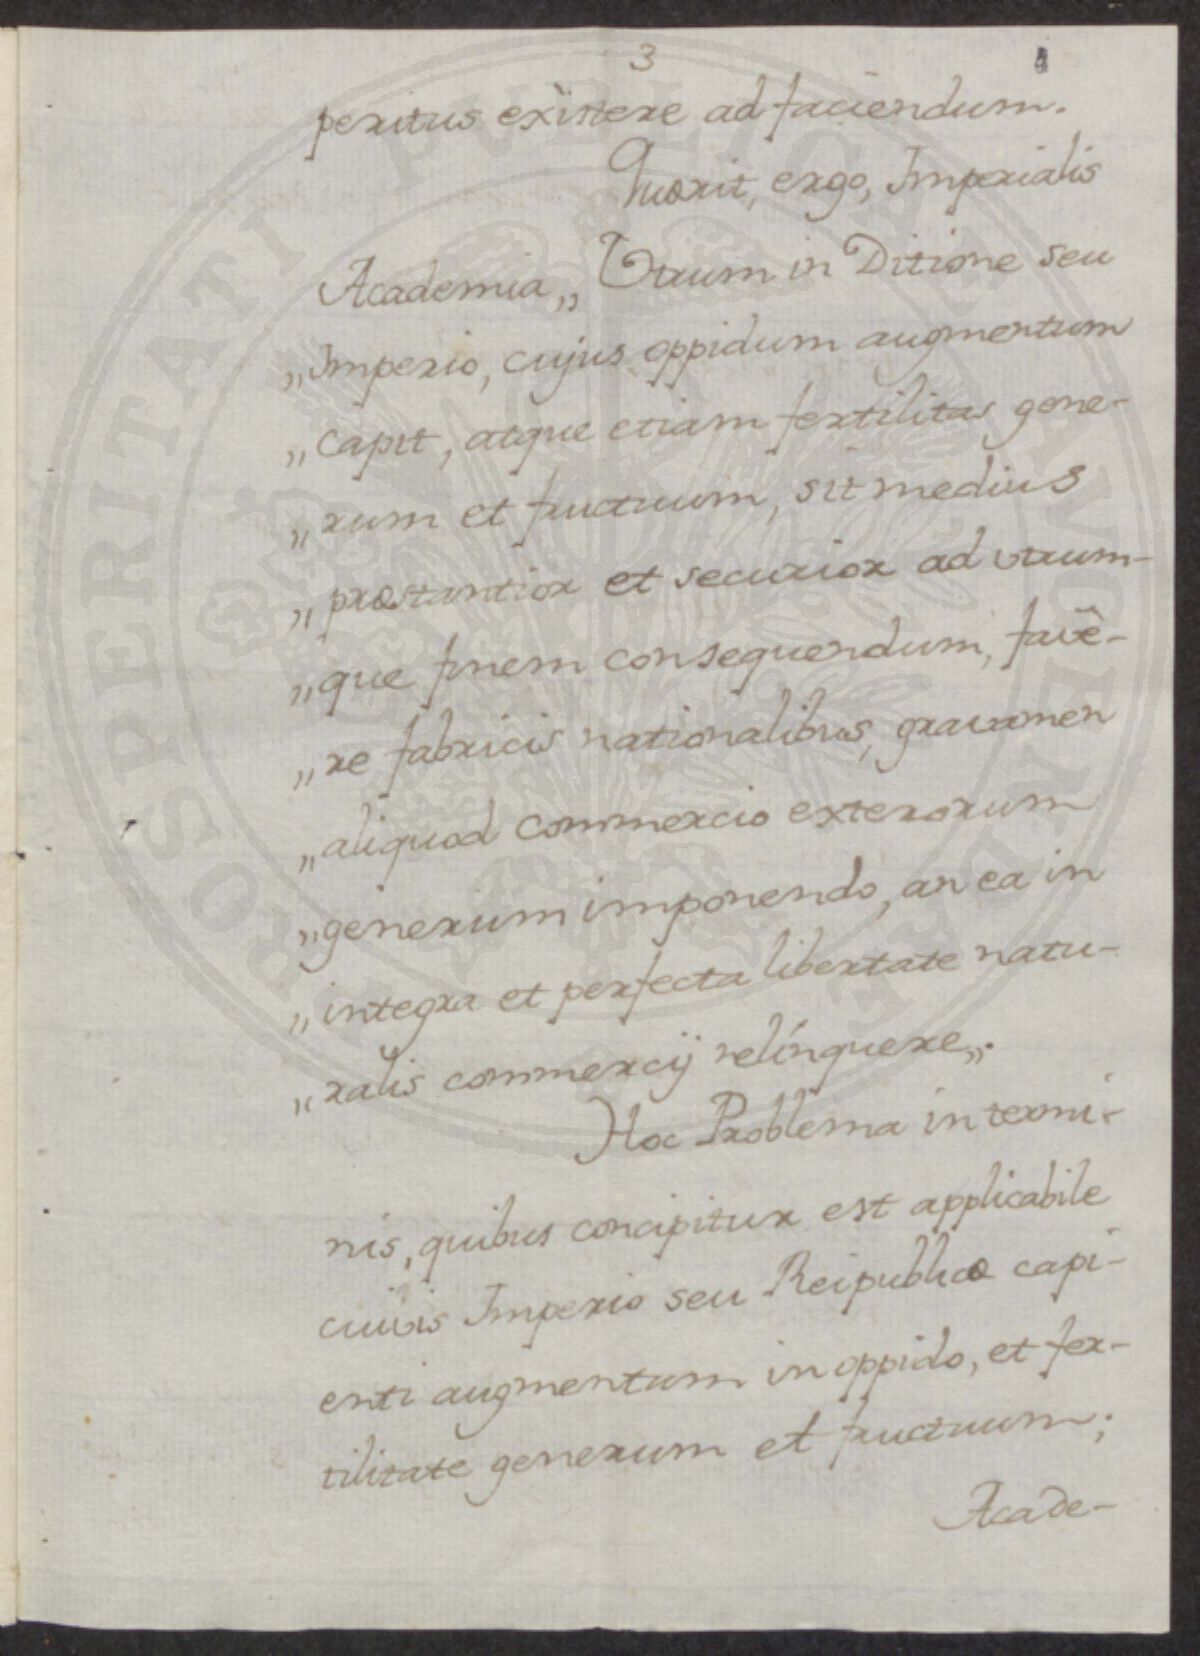 3
peritus existere ad faciendum.
Quærit, ergo, Imperialis
Academia„ Utrum in Ditione seu
„Imperio, cujus oppidum augmentum
„capit, atque etiam fertilitas gene-
„rum et fructuum, sit medius
„præstantior et securior ad utrum-
„que finem consequendum, favê-
„re fabricis nationalibus, gravamen
„aliquod commercio exterorum
„generum imponendo, an ea in
„integra et perfecta libertate natu-
„ralis commercij relinquere„.
Hoc Problema in termi-
nis, quibus concipitur est applicabile
cuivis Imperio seu Reipublicæ capi-
enti augmentum in oppido, et fer-
tilitate generum et fructuum;
Acade-
PROSPERITATI PUBLICAE AUGENDAE